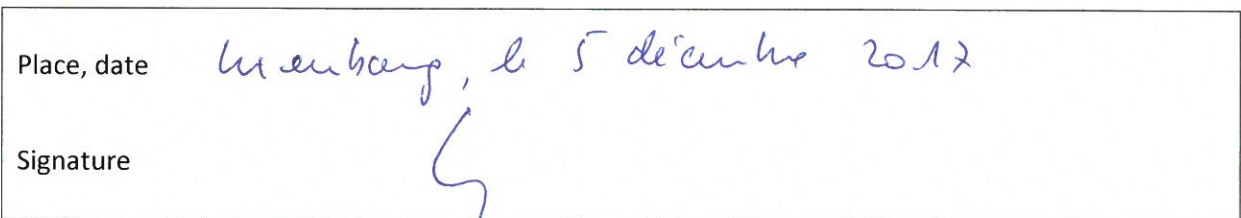 Place, date Luxembourg, le 5 décembre 2017
Signature